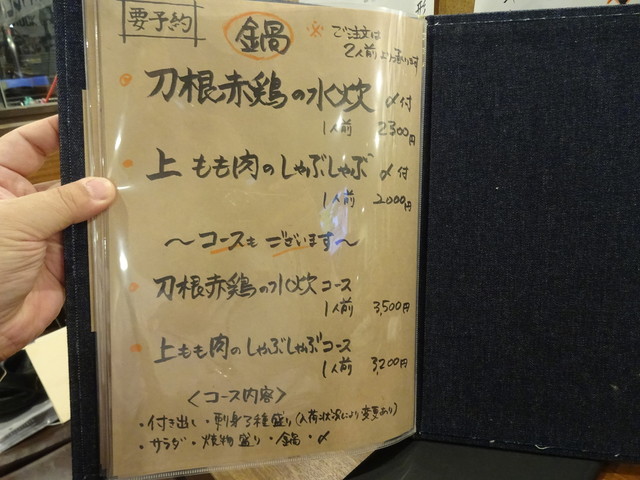 要予約
鍋
※ ご注文は
2人前より承ります
刀根赤鶏の水炊 〆付
1人前 2300円
上 もも肉のしゃぶしゃぶ 〆付
1人前 2000円
〜コースもございます〜
刀根赤鶏の水炊コース
1人前 3,500円
上もも肉のしゃぶしゃぶコース
1人前 3,200円
<コース内容>
・付き出し・刺身3種盛り(入荷状況により変更あり)
・サラダ・焼物盛り・鍋・〆